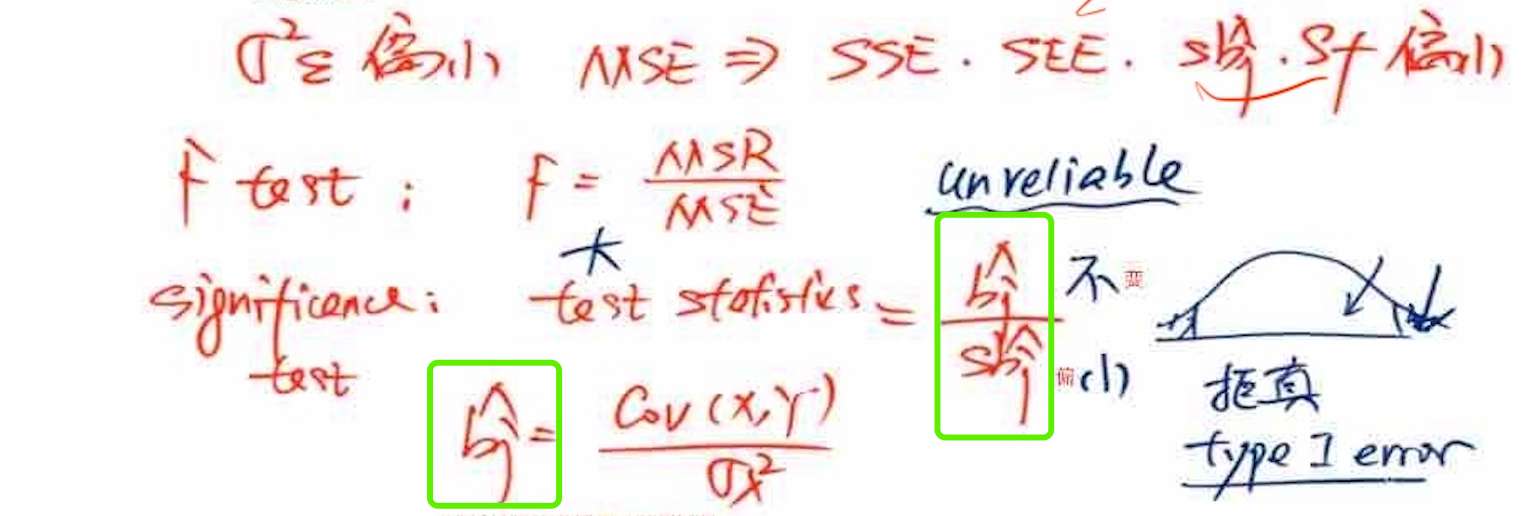 σ²ε 偏小 MSE ⇒ SSE. SEE. Sb̂j. Sf 偏小
F test: F = MSR/MSE unreliable
significance test: 大 test statistics = b̂j/Sb̂j 不变 偏小
b̂j = Cov(X,Y)/σx² 拒真
type I error